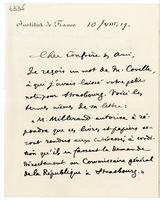 6335
Institut de France 10/VIII/19.
Cher Confrère et Ami,
Je reçois un mot de M. Coville,
à qui j'avais laissé votre petite
note pour Strasbourg. Voici les
termes mêmes de sa lettre :
« M. Millerand autorise à ré-
pondre que ces livres et papiers se-
ront rendus aux intéressés à condi-
tion qu'ils en fassent la demande
directement au Commissaire général
de la République à Strasbourg. »